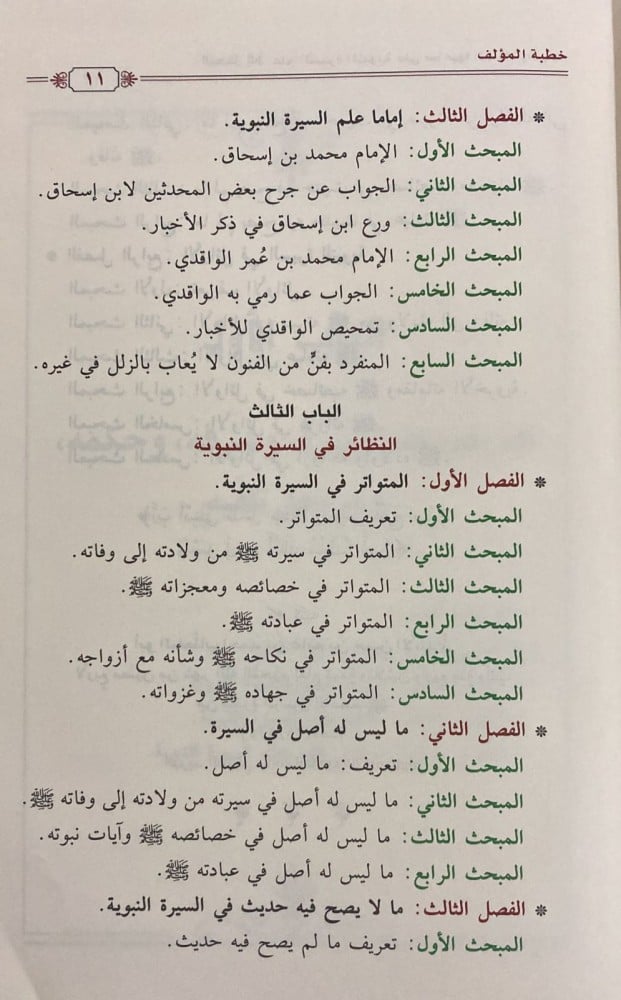 خطبة المؤلف
١١
* الفصل الثالث: إماما علم السيرة النبوية.
المبحث الأول: الإمام محمد بن إسحاق.
المبحث الثاني: الجواب عن جرح بعض المحدثين لابن إسحاق.
المبحث الثالث: ورع ابن إسحاق في ذكر الأخبار.
المبحث الرابع: الإمام محمد بن عُمر الواقدي.
المبحث الخامس: الجواب عما رمي به الواقدي.
المبحث السادس: تمحيص الواقدي للأخبار.
المبحث السابع: المنفرد بفنٍّ من الفنون لا يُعاب بالزلل في غيره.
الباب الثالث
النظائر في السيرة النبوية
* الفصل الأول: المتواتر في السيرة النبوية.
المبحث الأول: تعريف المتواتر.
المبحث الثاني: المتواتر في سيرته ﷺ من ولادته إلى وفاته.
المبحث الثالث: المتواتر في خصائصه ومعجزاته ﷺ.
المبحث الرابع: المتواتر في عبادته ﷺ.
المبحث الخامس: المتواتر في نكاحه ﷺ وشأنه مع أزواجه.
المبحث السادس: المتواتر في جهاده ﷺ وغزواته.
* الفصل الثاني: ما ليس له أصل في السيرة.
المبحث الأول: تعريف: ما ليس له أصل.
المبحث الثاني: ما ليس له أصل في سيرته من ولادته إلى وفاته ﷺ.
المبحث الثالث: ما ليس له أصل في خصائصه ﷺ وآيات نبوته.
المبحث الرابع: ما ليس له أصل في عبادته ﷺ.
* الفصل الثالث: ما لا يصح فيه حديث في السيرة النبوية.
المبحث الأول: تعريف ما لم يصح فيه حديث.